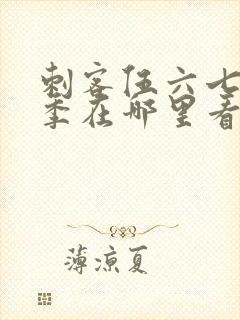 刺客伍六七
季在哪里看
薄凉夏